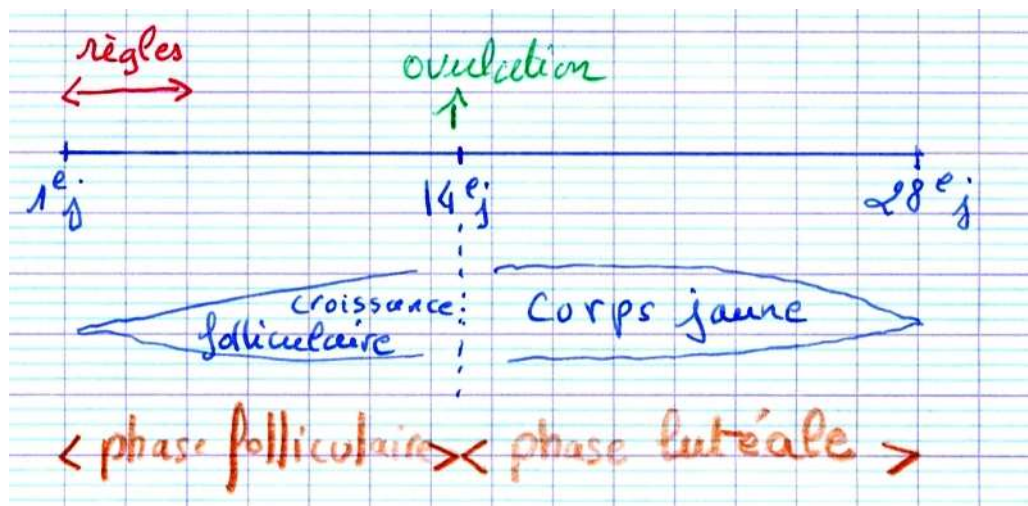 règles
ovulation
1e j
14e j
28e j
croissance
folliculaire
corps jaune
< phase folliculaire >< phase lutéale >